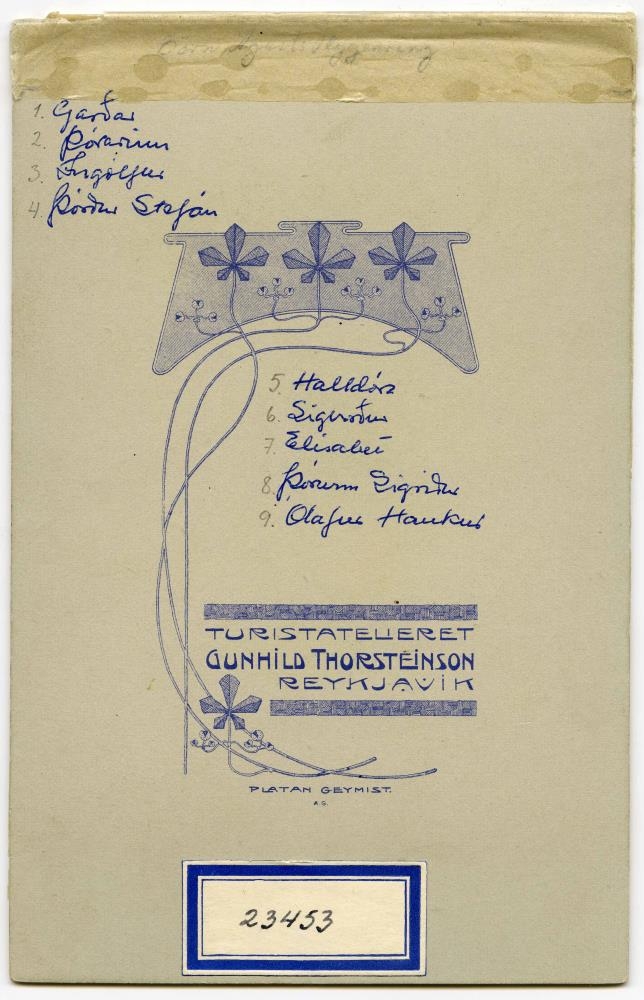 Börn Ágústs Flygenring
1. Garðar
2. Þórarinn
3. Ingólfur
4. Þórður Stefán
5. Halldóra
6. Sigurður
7. Elísabet
8. Þórunn Sigríður
9. Ólafur Haukur
TURISTATELIERET
GUNHILD THORSTEINSON
REYKJAVIK
PLATAN GEYMIST.
A.G.
23453